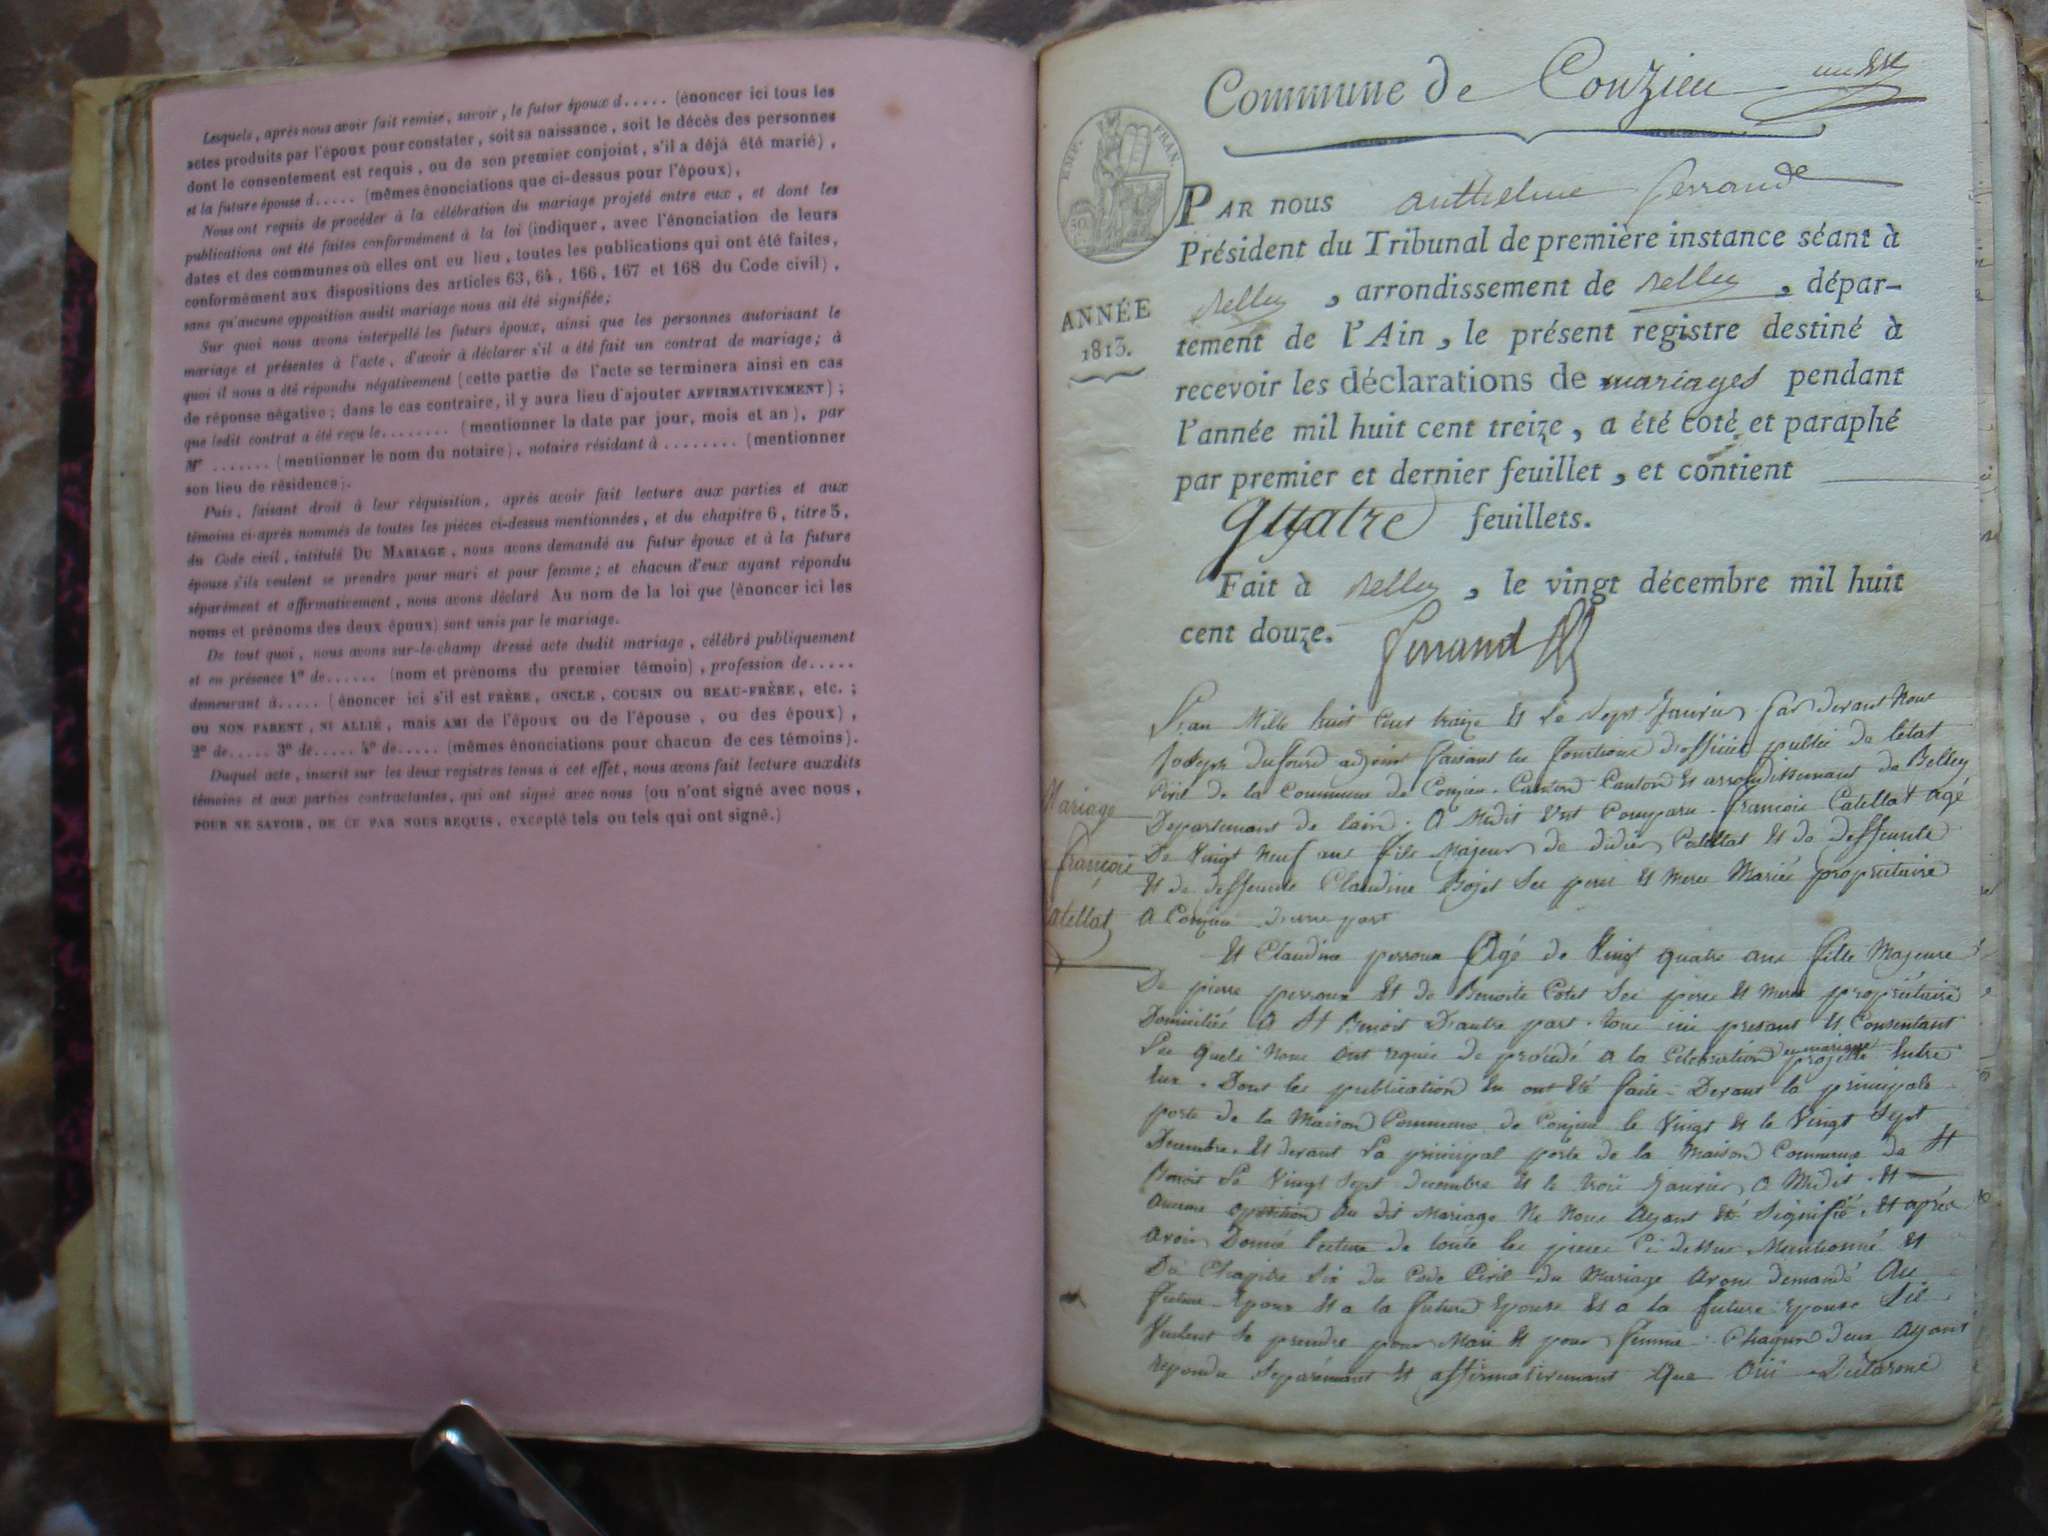 Lesquels, après nous avoir fait remise, savoir, le futur époux d..... (énoncer ici tous les
actes produits par l'époux pour constater, soit sa naissance, soit le décès des personnes
dont le consentement est requis, ou de son premier conjoint, s'il a déjà été marié),
et la future épouse d..... (mêmes énonciations que ci-dessus pour l'époux),
Nous ont requis de procéder à la célébration du mariage projeté entre eux, et dont les
publications ont été faites conformément à la loi (indiquer, avec l'énonciation de leurs
dates et des communes où elles ont eu lieu, toutes les publications qui ont été faites,
conformément aux dispositions des articles 63, 64, 166, 167 et 168 du Code civil),
sans qu'aucune opposition audit mariage nous ait été signifiée;
Sur quoi nous avons interpellé les futurs époux, ainsi que les personnes autorisant le
mariage et présentes à l'acte, d'avoir à déclarer s'il a été fait un contrat de mariage; à
quoi il nous a été répondu négativement (cette partie de l'acte se terminera ainsi en cas
de réponse négative; dans le cas contraire, il y aura lieu d'ajouter AFFIRMATIVEMENT);
que ledit contrat a été reçu le........ (mentionner la date par jour, mois et an), par
Me ....... (mentionner le nom du notaire), notaire résidant à ........ (mentionner
son lieu de résidence);.
Puis, faisant droit à leur réquisition, après avoir fait lecture aux parties et aux
témoins ci-après nommés de toutes les pièces ci-dessus mentionnées, et du chapitre 6, titre 5,
du Code civil, intitulé DU MARIAGE, nous avons demandé au futur époux et à la future
épouse s'ils veulent se prendre pour mari et pour femme; et chacun d'eux ayant répondu
séparément et affirmativement, nous avons déclaré Au nom de la loi que (énoncer ici les
noms et prénoms des deux époux) sont unis par le mariage.
De tout quoi, nous avons sur-le-champ dressé acte dudit mariage, célébré publiquement
et en présence 1º de...... (nom et prénoms du premier témoin), profession de.....
demeurant à..... (énoncer ici s'il est FRÈRE, ONCLE, COUSIN OU BEAU-FRÈRE, etc.;
OU NON PARENT, NI ALLIÉ, mais AMI de l'époux ou de l'épouse, ou des époux),
2º de..... 3º de..... 4º de..... (mêmes énonciations pour chacun de ces témoins).
Duquel acte, inscrit sur les deux registres tenus à cet effet, nous avons fait lecture auxdits
témoins et aux parties contractantes, qui ont signé avec nous (ou n'ont signé avec nous,
POUR NE SAVOIR, DE CE PAR NOUS REQUIS, excepté tels ou tels qui ont signé.)
Commune de Conzieu
EMP. FRAN.
ANNÉE
1813.
PAR nous anthelme ferrand
Président du Tribunal de première instance séant à
Belley, arrondissement de Belley, dépar-
tement de l'Ain, le présent registre destiné à
recevoir les déclarations de mariages pendant
l'année mil huit cent treize, a été coté et paraphé
par premier et dernier feuillet, et contient
quatre feuillets.
Fait à Belley, le vingt décembre mil huit
cent douze. ferrand
Mariage
françois
Catellat
L'an Mille huit Cent traize Et Le Sept Janvier par devant Nous
Joseph dufourd adjoint faisant les fonctions d'officier public de l'état
Civil de la Commune de Conzieu Canton Canton Et arrondissemant de Belley
Departemant de lain. a Midit Est Comparu françois Catellat agé
De Vingt Neuf ans fils Majeur de didier Catellat Et de deffeunte
Et de deffeunte Claudine Bojet Ses perre Et Mere Mariés propriétaire
a Conzieu d'une part
Et Claudine perroux Agé de Vingt quatre ans fille Majeure
De pierre perroux Et de Benoite Cotet Ses perre Et Mere propriétaire
Domiciliée a St Benoit D'autre part. tous ici present Et Consentant
Les quels Nous ont requis de procédé a la Celebration du mariage projetté Entre
Eux. Dont les publication En ont été faite Devant la principale
porte de la Maison Commune de Conzieu le Vingt Et le Vingt Sept
Decembre, Et devant La principal porte de la Maison Commune de St
Benoit Le Vingt Sept decembre Et le trois Janvier a Midit. Et
aucune opotition au dit Mariage Ne Nous Ayant Eté Signifié. Et après
avoir Donné lecture de toute les pieces Ci dessus Mantionné Et
Du Chapitre Six du Code Civil du Mariage avons demandé Au
future Epoux Et a la future Epouse Et a la future Epouse Sil
Veulent Se prendre pour Mari Et pour femme. Chaqun deux Ayant
repondu Séparémant Et affirmativemant Que Oui Déclarons